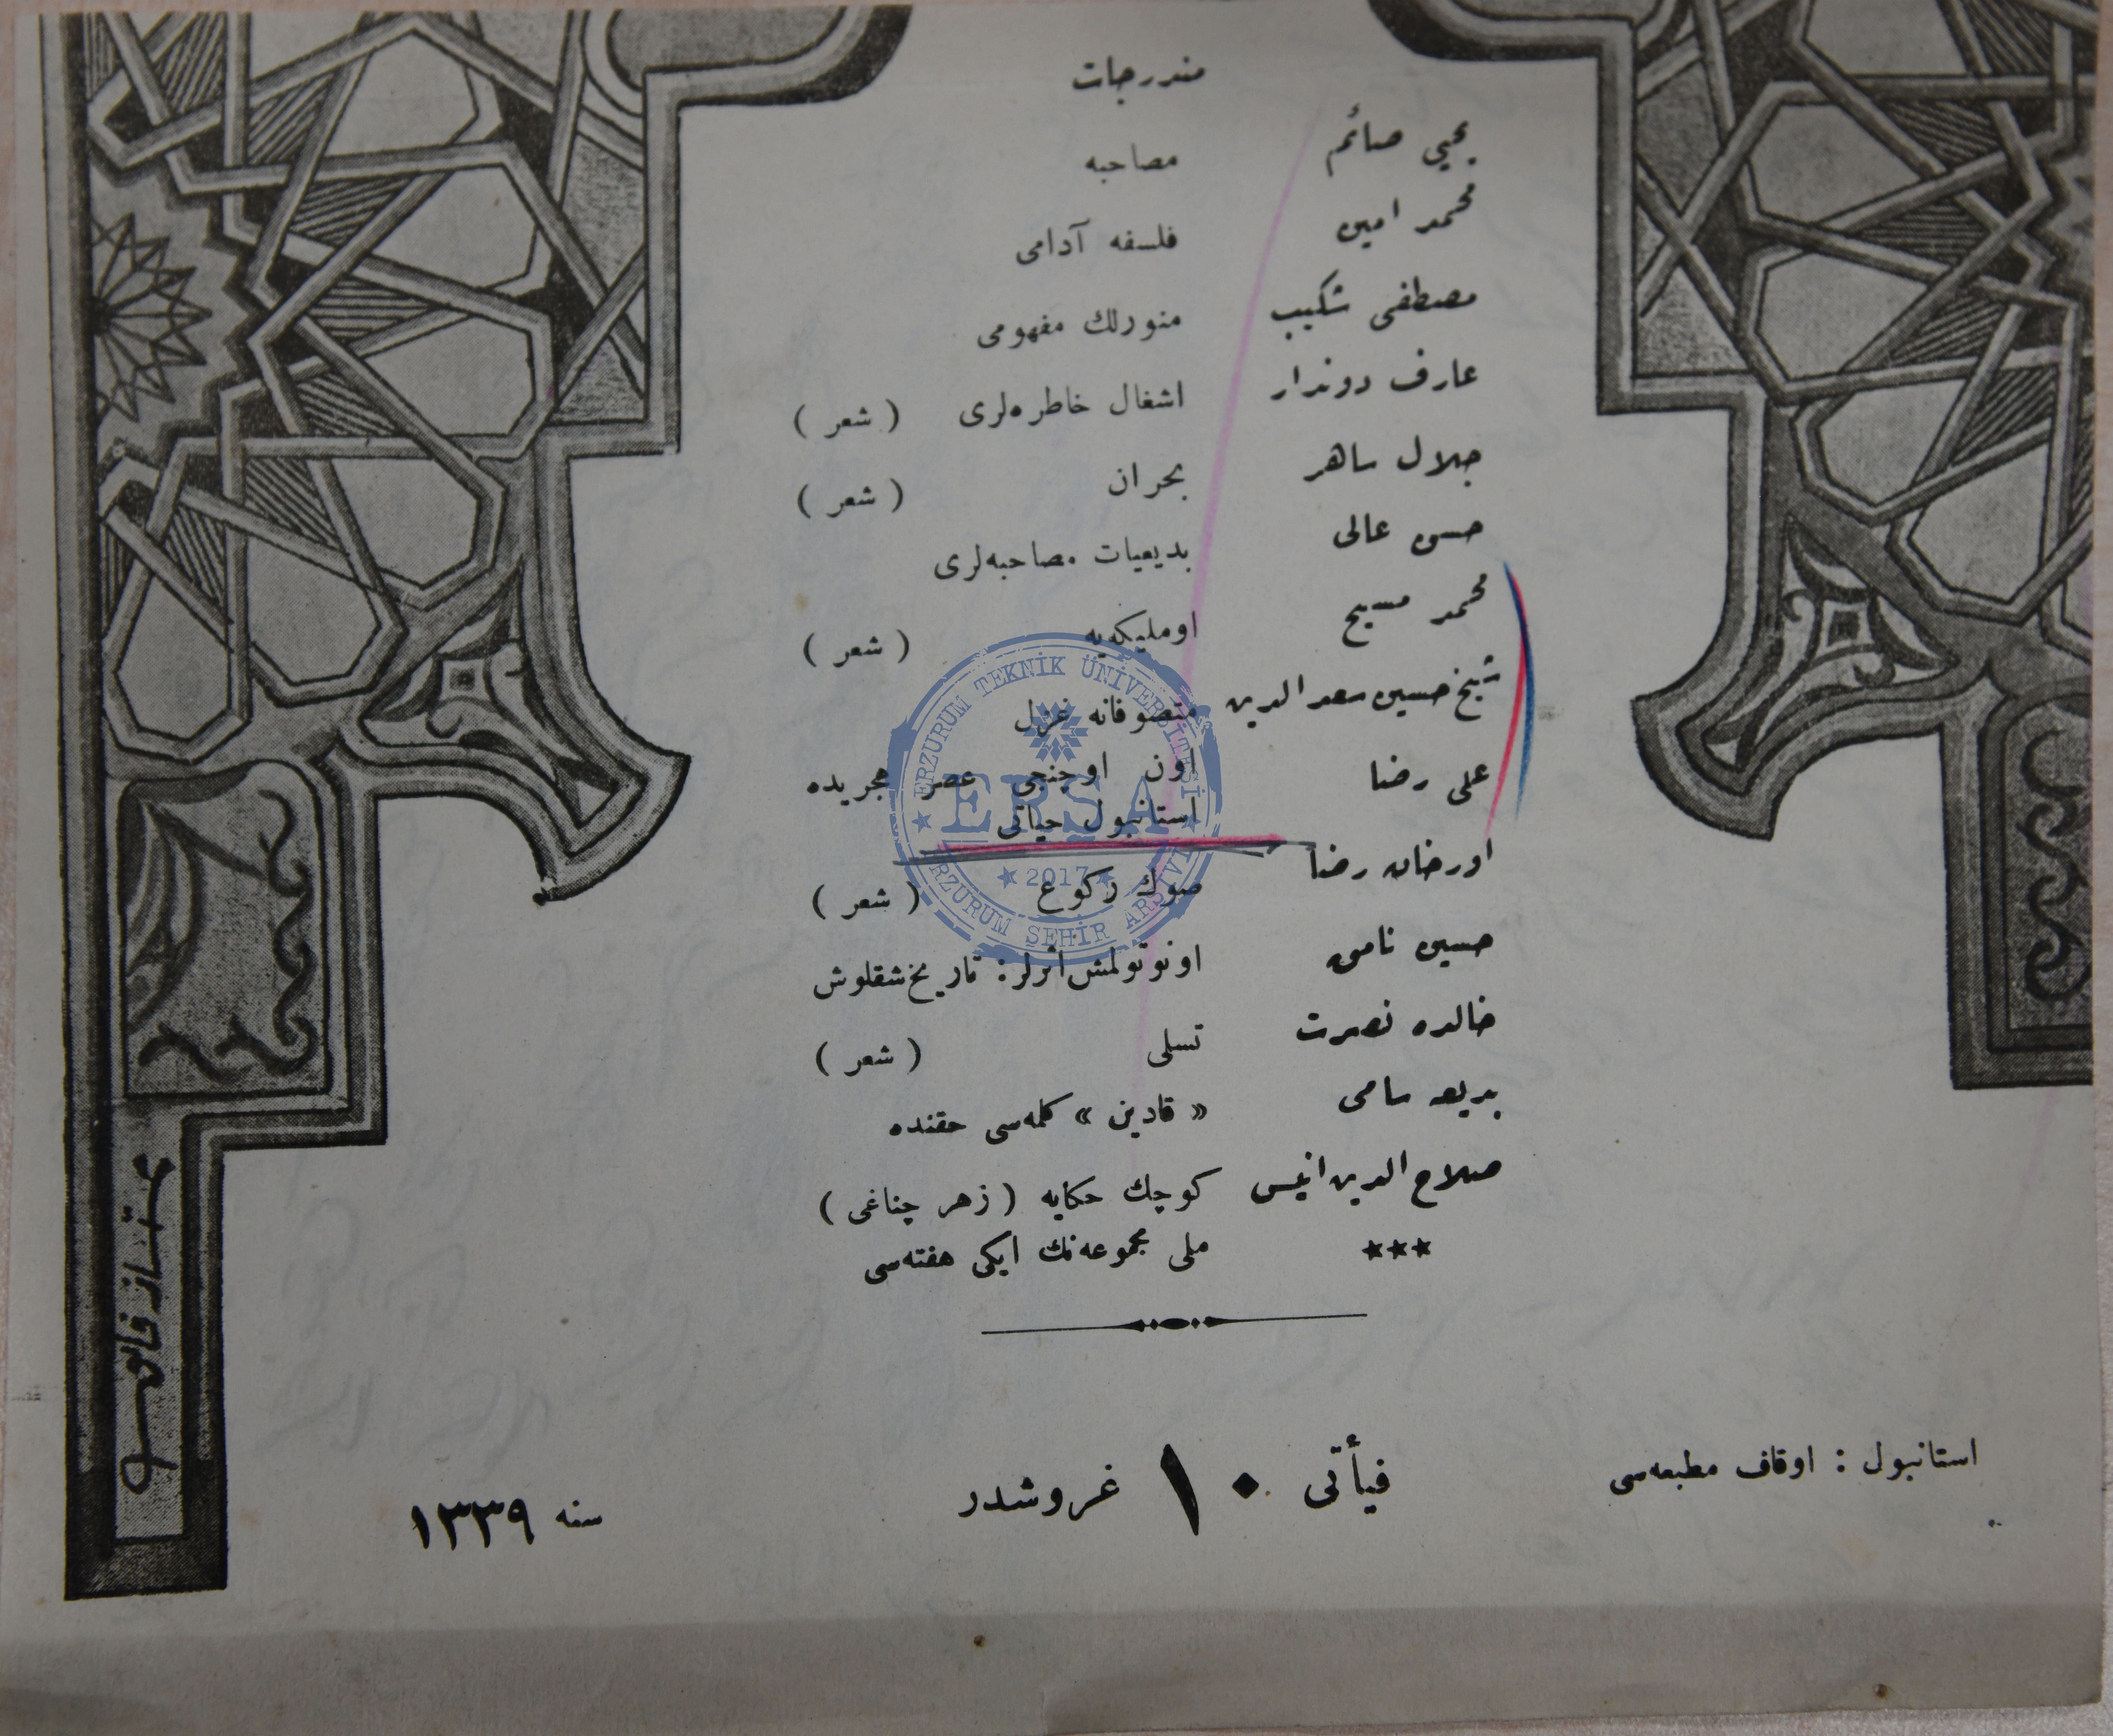 مندرجات
يحيي صائم مصاحبه
محمد امين فلسفه آدامى
مصطفى شكيب منورلك مفهومى
عارف دوندار اشغال خاطره‌لرى ( شعر )
جلال ساهر بحران ( شعر )
حسن عالى بديعيات مصاحبه‌لرى
محمد مسيح اومليكه‌يه ( شعر )
شيخ حسين سعد الدين متصوفانه غزل
على رضا اون اوچنجى عصر هجريده
استانبول حياتى
اورخان رضا صوك ركوع ( شعر )
حسين نامى اونوتولمش اثرلر : تاريخ شقلوش
خالده نصرت تسلى ( شعر )
بديعه سامى « قادين » كلمه‌سى حقنده
صلاح الدين انيس كوچك حكايه ( زهر چناغى )
*** ملى مجموعه‌نك ايكى هفته‌سى
استانبول : اوقاف مطبعه‌سى
فيأتى ١٠ غروشدر
سنه ١٣٣٩
ERZURUM TEKNİK ÜNİVERSİTESİ
ERSA
2017
ERZURUM ŞEHİR ARŞİVİ